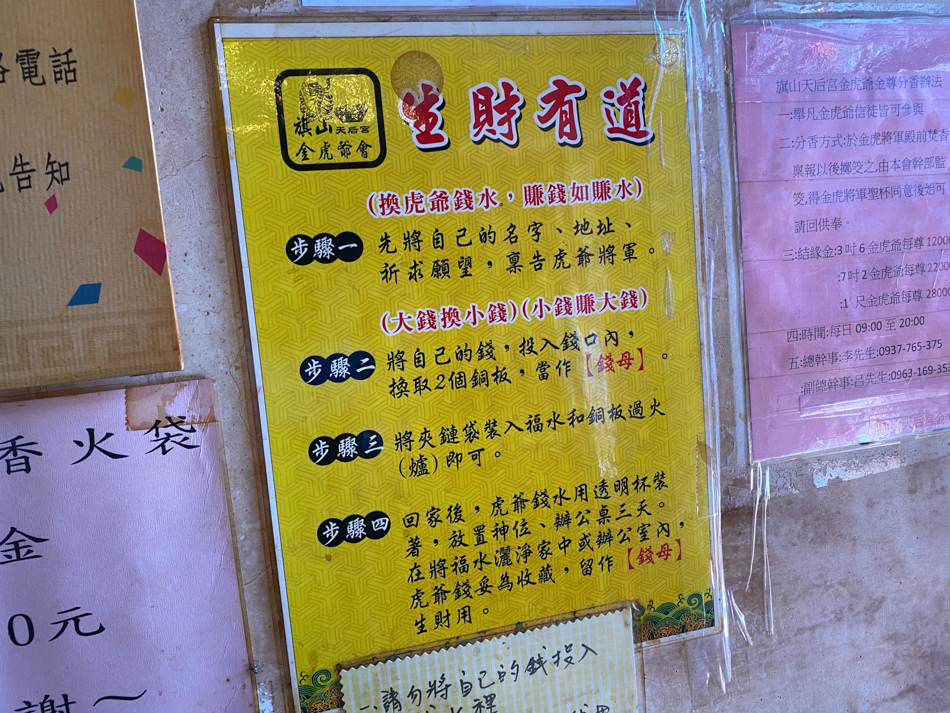 絡電話
告知
香火袋
金
0元
謝～
旗山天后宮
金虎爺會
生財有道
(換虎爺錢水，賺錢如賺水)
步驟一
先將自己的名字、地址、
祈求願望，稟告虎爺將軍。
(大錢換小錢)(小錢賺大錢)
步驟二
將自己的錢，投入錢口內，
換取2個銅板，當作【錢母】。
步驟三
將夾鏈袋裝入福水和銅板過火
(爐)即可。
步驟四
回家後，虎爺錢水用透明杯裝
著，放置神位、辦公桌三天。
在將福水灑淨家中或辦公室內，
虎爺錢妥為收藏，留作【錢母】
生財用。
請勿將自己的錢投入
裡
旗山天后宮金虎爺金尊分香辦法
一:舉凡金虎爺信徒皆可參與
二:分香方式:於金虎將軍殿前焚香
稟報以後擲筊之,由本會幹部監
筊,得金虎將軍聖杯同意後始可
請回供奉。
三:結緣金:3吋6金虎爺每尊12000
:7吋2金虎爺每尊22000
:1 尺金虎爺每尊28000
四:時間:每日 09:00 至 20:00
五:總幹事:李先生:0937-765-375
:副總幹事:呂先生:0963-169-353